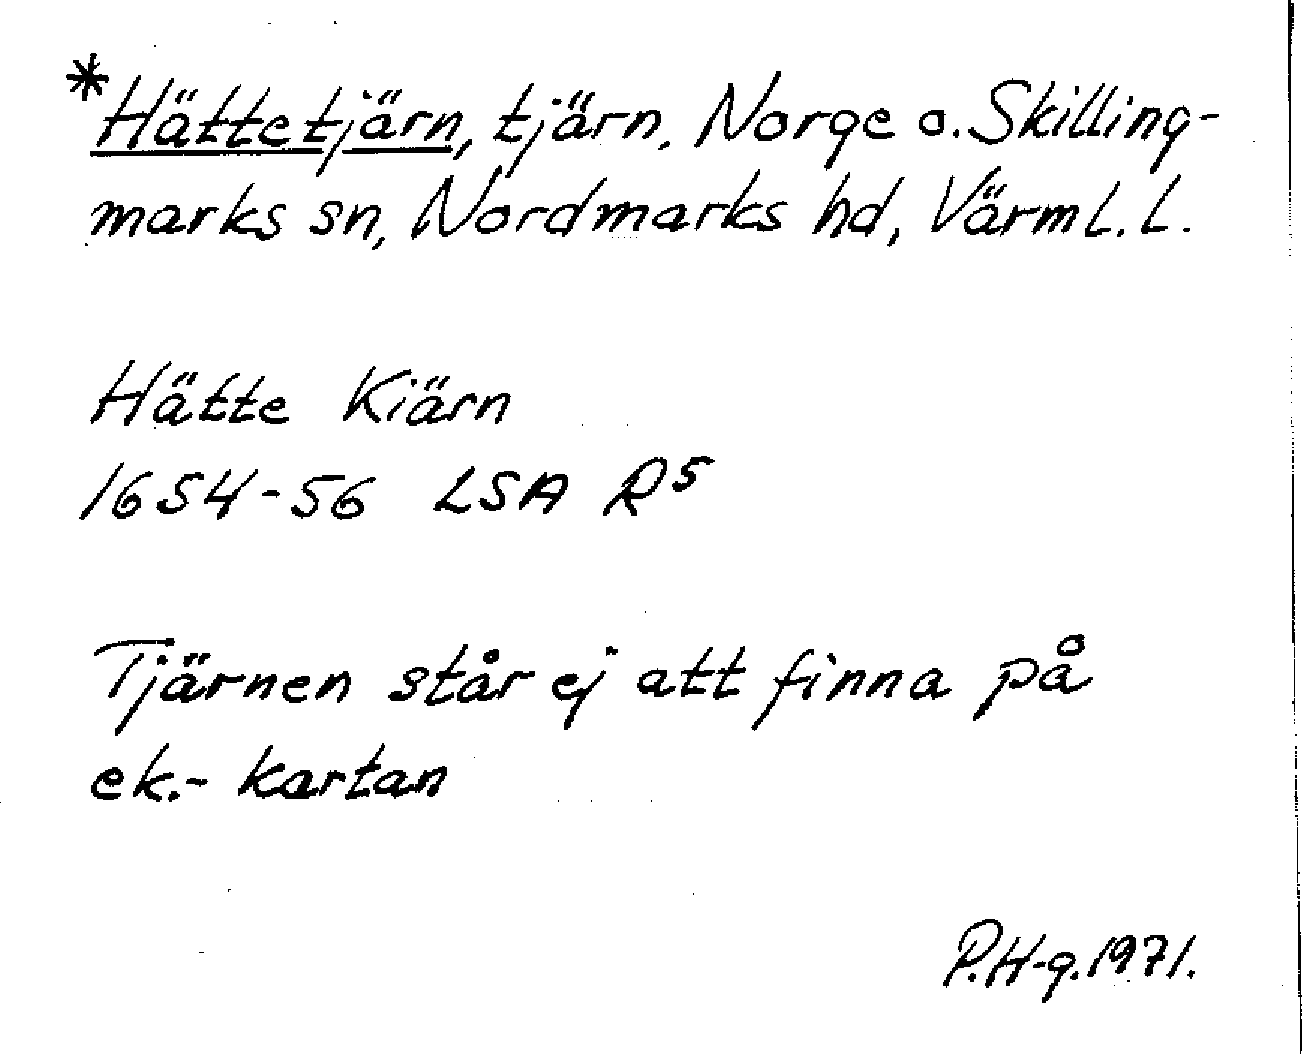 *Hättetjärn, tjärn, Norge o. Skilling-
marks sn, Nordmarks hd, Värml. l.
Hätte Kiärn
1654-56 LSA R5
Tjärnen står ej att finna på
ek.- kartan
P.H-g. 1971.